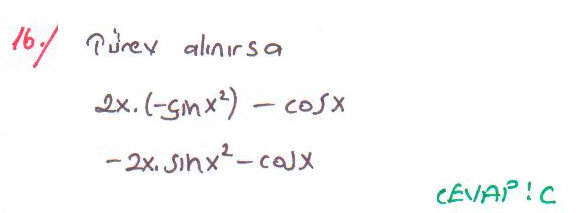 16./ Türev alınırsa
2x.(-sinx²) - cosx
-2x.sinx² - cosx
CEVAP: C